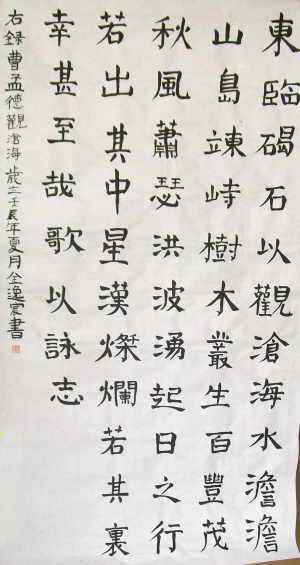 東臨碣石以觀滄海水澹澹
山島竦峙樹木叢生百豐茂
秋風蕭瑟洪波湧起日之行
若出其中星漢燦爛若其裏
幸甚至哉歌以詠志
右錄曹孟德觀滄海歲立壬辰年夏月逸書